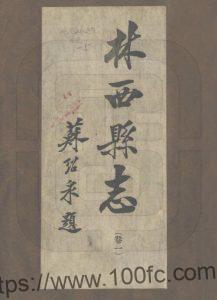 林西縣志
（卷一）
蘇紹泉題
https://www.100fc.com